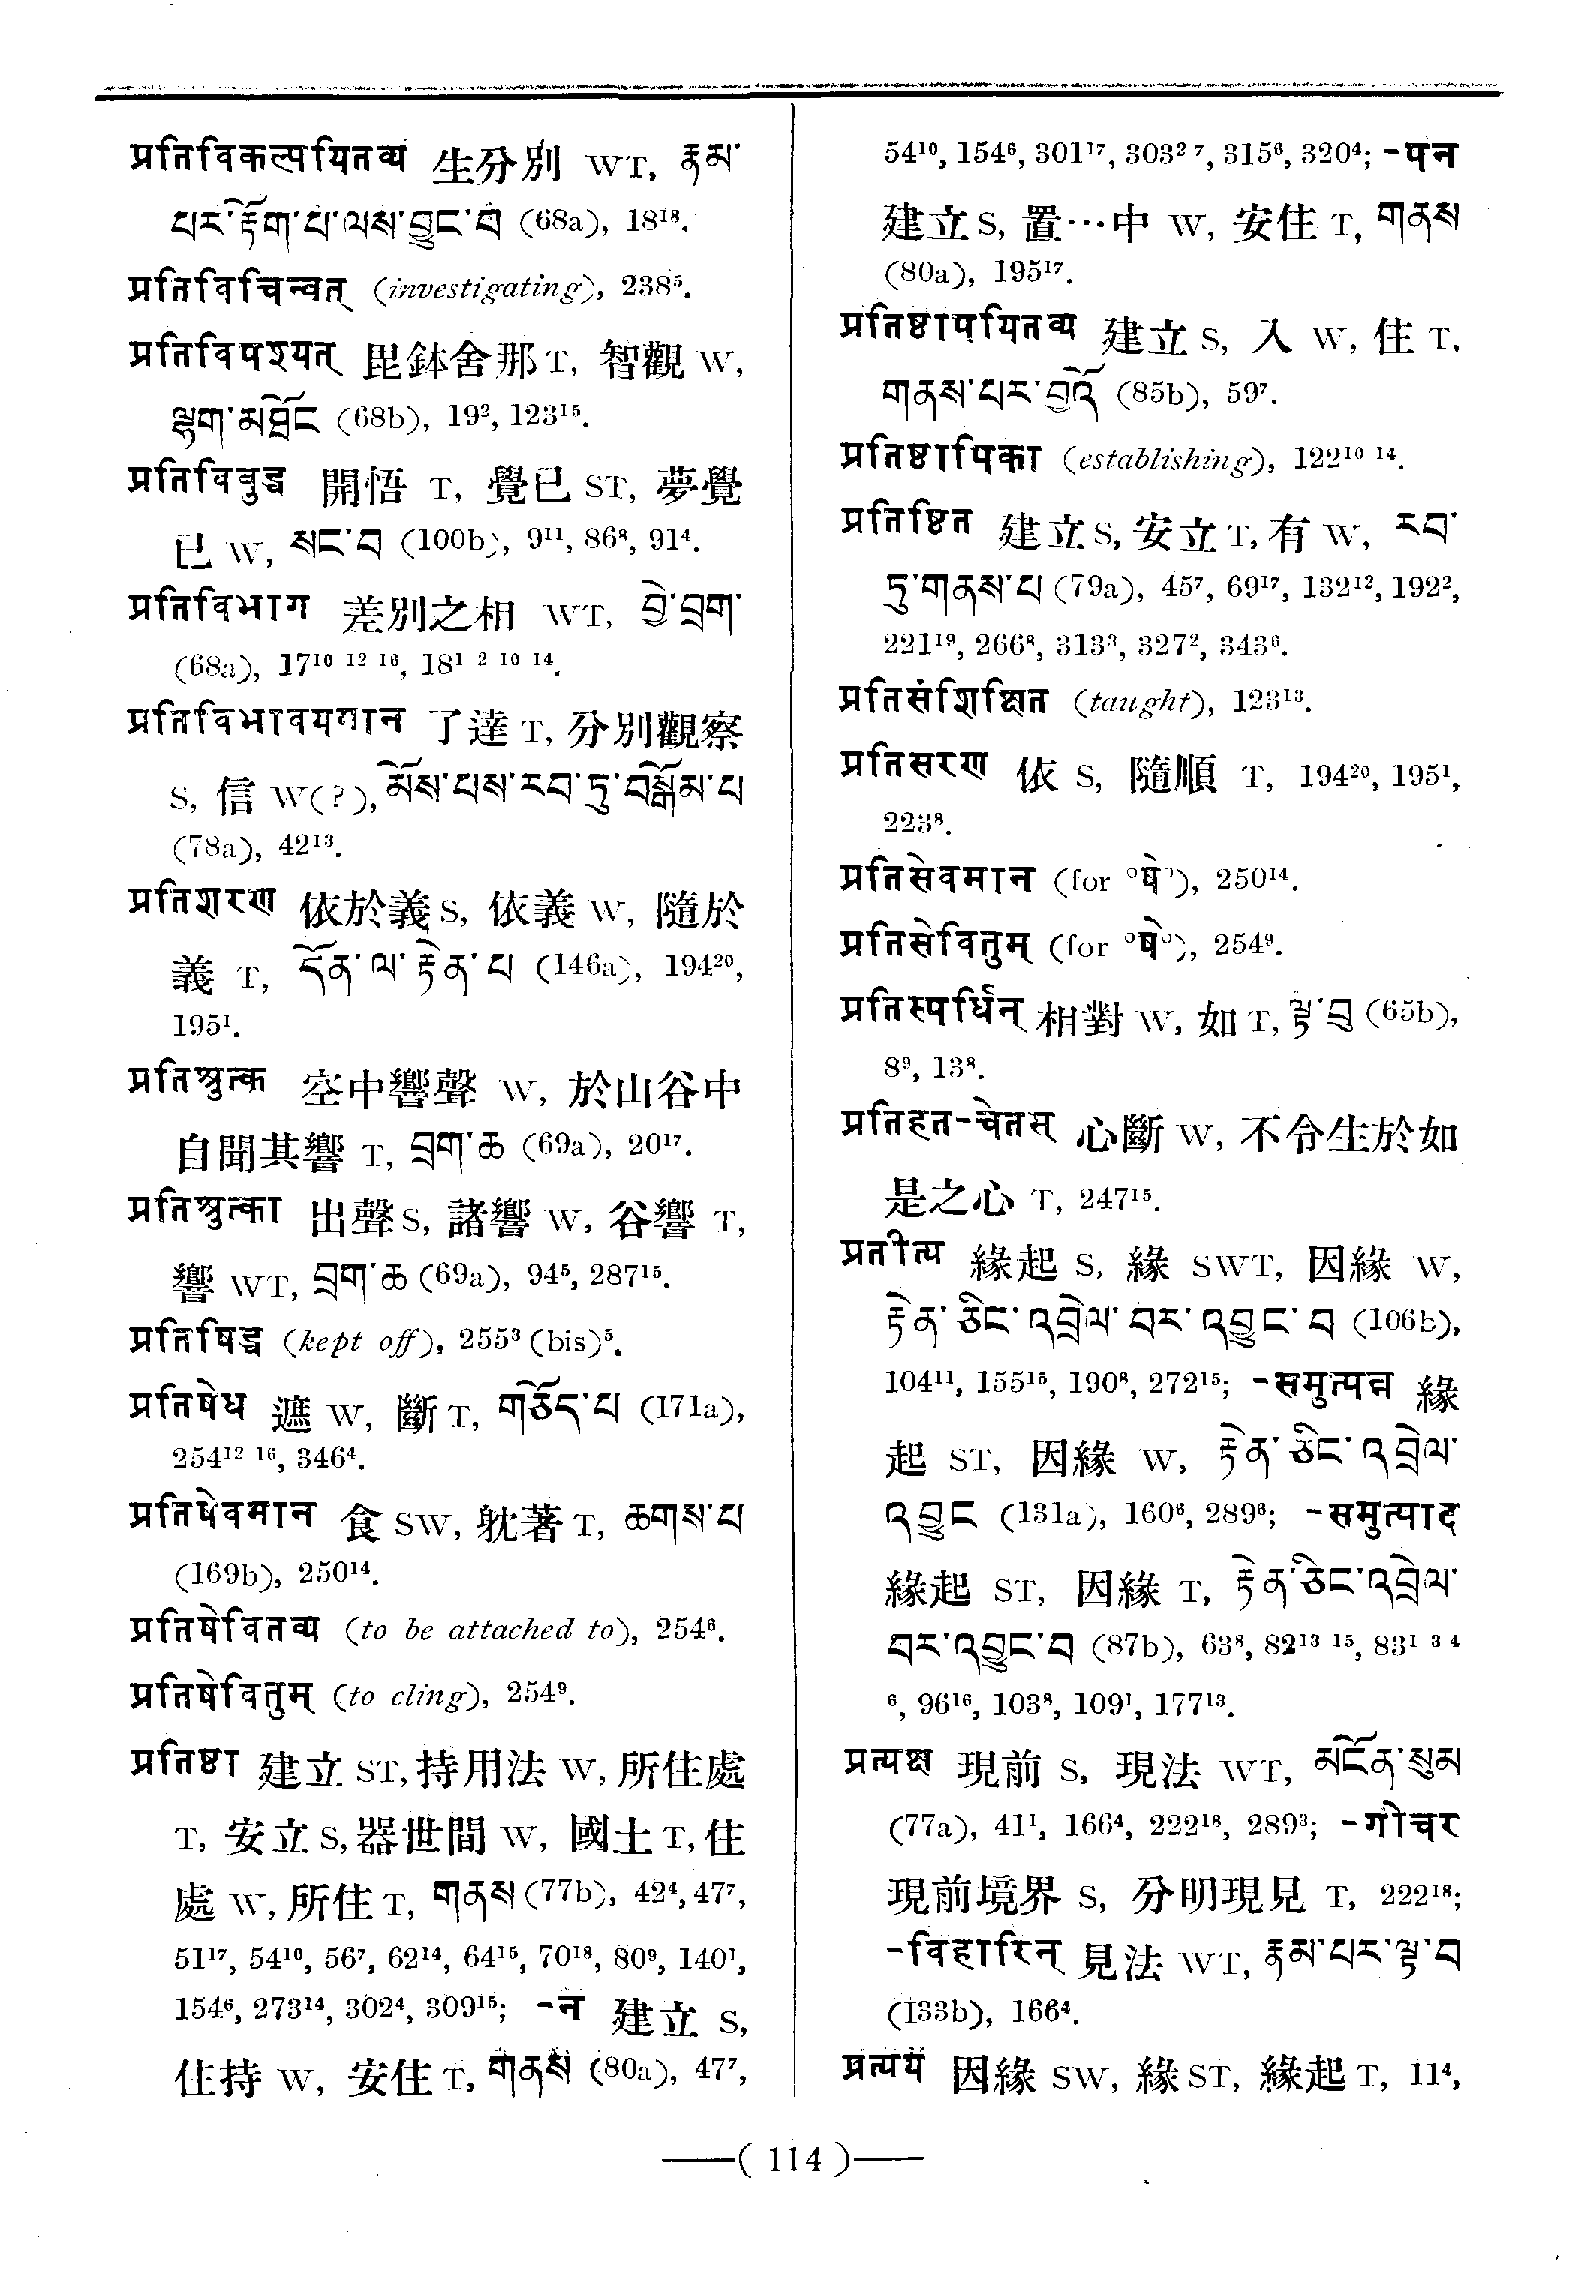 प्रतिविकल्पयितव्य 生分別 WT, རྣམ་
པར་རྟོག་པ་ལས་བྱུང་བ (68a), 18¹⁸.
प्रतिविचिन्वत् (investigating), 238⁵.
प्रतिविपश्यत् 毘鉢舍那 T, 智觀 W,
ལྷག་མཐོང (68b), 19², 123¹⁵.
प्रतिविबुद्ध 開悟 T, 覺已 ST, 夢覺
已 W, སང་བ (100b), 9¹¹, 86⁸, 91⁴.
प्रतिविभाग 差別之相 WT, བྱེ་བྲག་
(68a), 17¹⁰ ¹² ¹⁶, 18¹ ² ¹⁰ ¹⁴.
प्रतिविभावयमान 了達 T, 分別觀察
S, 信 W(?), མོས་པས་རབ་ཏུ་བསྒོམ་པ
(78a), 42¹³.
प्रतिशरण 依於義 S, 依義 W, 隨於
義 T, དོན་ལ་རྟེན་པ (146a), 194²⁰,
195¹.
प्रतिश्रुत्क 空中響聲 W, 於山谷中
自聞其響 T, བྲག་ཆ (69a), 20¹⁷.
प्रतिश्रुत्का 出聲 S, 諸響 W, 谷響 T,
響 WT, བྲག་ཆ (69a), 94⁵, 287¹⁵.
प्रतिषिद्ध (kept off), 255³ (bis)⁵.
प्रतिषेध 遮 W, 斷 T, གཅོད་པ (171a),
254¹² ¹⁶, 346⁴.
प्रतिषेवमान 食 SW, 躭著 T, ཆགས་པ
(169b), 250¹⁴.
प्रतिषेवितव्य (to be attached to), 254⁶.
प्रतिषेवितुम् (to cling), 254⁹.
प्रतिष्ठा 建立 ST, 持用法 W, 所住處
T, 安立 S, 器世間 W, 國土 T, 住
處 W, 所住 T, གནས (77b), 42⁴, 47⁷,
51¹⁷, 54¹⁰, 56⁷, 62¹⁴, 64¹⁵, 70¹⁸, 80⁹, 140¹,
154⁶, 273¹⁴, 302⁴, 309¹⁵; -न 建立 S,
住持 W, 安住 T, གནས (80a), 47⁷,
54¹⁰, 154⁶, 301¹⁷, 303² ⁷, 315⁶, 320⁴; -पन
建立 S, 置⋯中 W, 安住 T, གནས
(80a), 195¹⁷.
प्रतिष्ठापयितव्य 建立 S, 入 W, 住 T,
གནས་པར་བྱའོ (85b), 59⁷.
प्रतिष्ठापिका (establishing), 122¹⁰ ¹⁴.
प्रतिष्ठित 建立 S, 安立 T, 有 W, རབ་
ཏུ་གནས་པ (79a), 45⁷, 69¹⁷, 132¹², 192²,
221¹⁹, 266⁸, 313³, 327², 343⁶.
प्रतिसंशिक्षित (taught), 123¹³.
प्रतिसरण 依 S, 隨順 T, 194²⁰, 195¹,
223⁸.
प्रतिसेवमान (for °षे°), 250¹⁴.
प्रतिसेवितुम् (for °षे°), 254⁹.
प्रतिस्पर्धिन् 相對 W, 如 T, ལྟ་བུ (65b),
8⁹, 13⁸.
प्रतिहत-चेतस् 心斷 W, 不令生於如
是之心 T, 247¹⁵.
प्रतीत्य 緣起 S, 緣 SWT, 因緣 W,
རྟེན་ཅིང་འབྲེལ་བར་འབྱུང་བ (106b),
104¹¹, 155¹⁵, 190⁸, 272¹⁵; -समुत्पन्न 緣
起 ST, 因緣 W, རྟེན་ཅིང་འབྲེལ་
འབྱུང (131a), 160⁶, 289⁶; -समुत्पाद
緣起 ST, 因緣 T, རྟེན་ཅིང་འབྲེལ་
བར་འབྱུང་བ (87b), 63⁸, 82¹³ ¹⁵, 83¹ ³ ⁴
⁶, 96¹⁶, 103⁸, 109¹, 177¹³.
प्रत्यक्ष 現前 S, 現法 WT, མངོན་སུམ
(77a), 41¹, 166⁴, 222¹⁸, 289³; -गोचर
現前境界 S, 分明現見 T, 222¹⁸;
-विहारिन् 見法 WT, རྣམ་པར་ལྟ་བ
(133b), 166⁴.
प्रत्यय 因緣 SW, 緣 ST, 緣起 T, 11⁴,
—( 114 )—